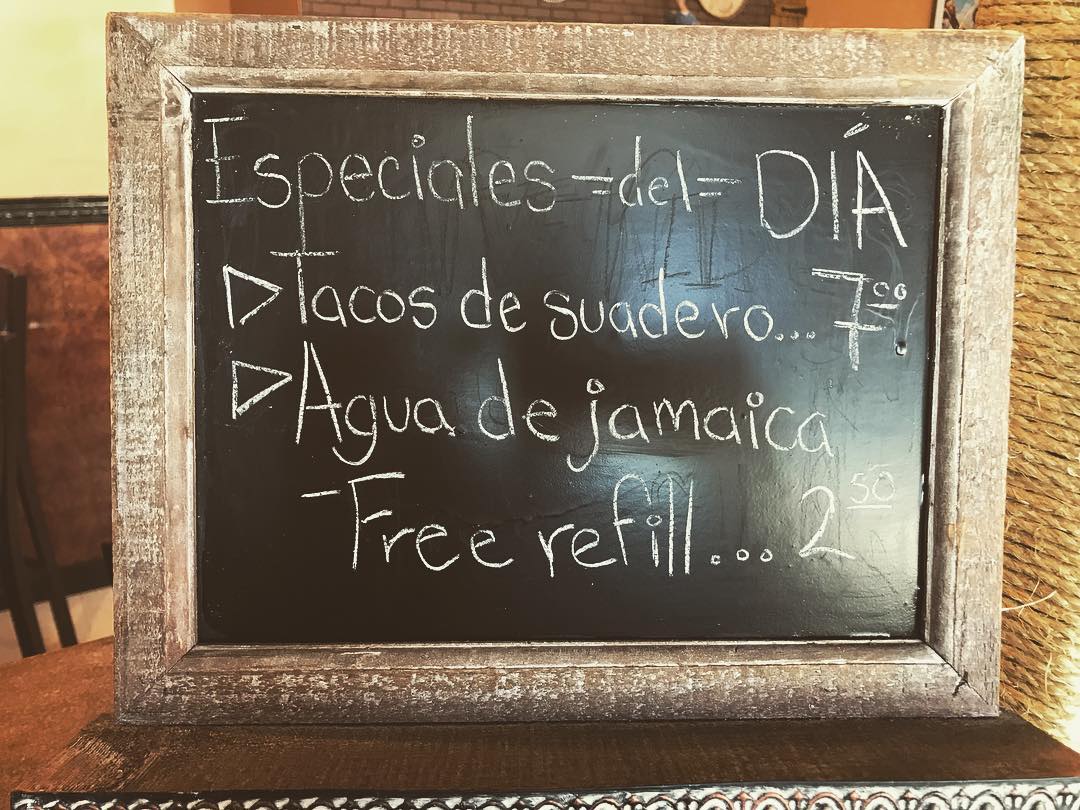 Especiales =del= DÍA
Tacos de suadero... 7.00
Agua de jamaica
-Free refill... 2.50